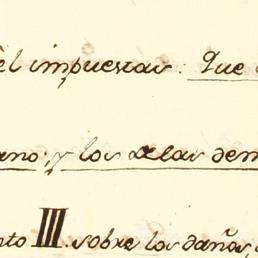 el impuestas: Que
ano; y los de las dem
nto III. sobre los daños,